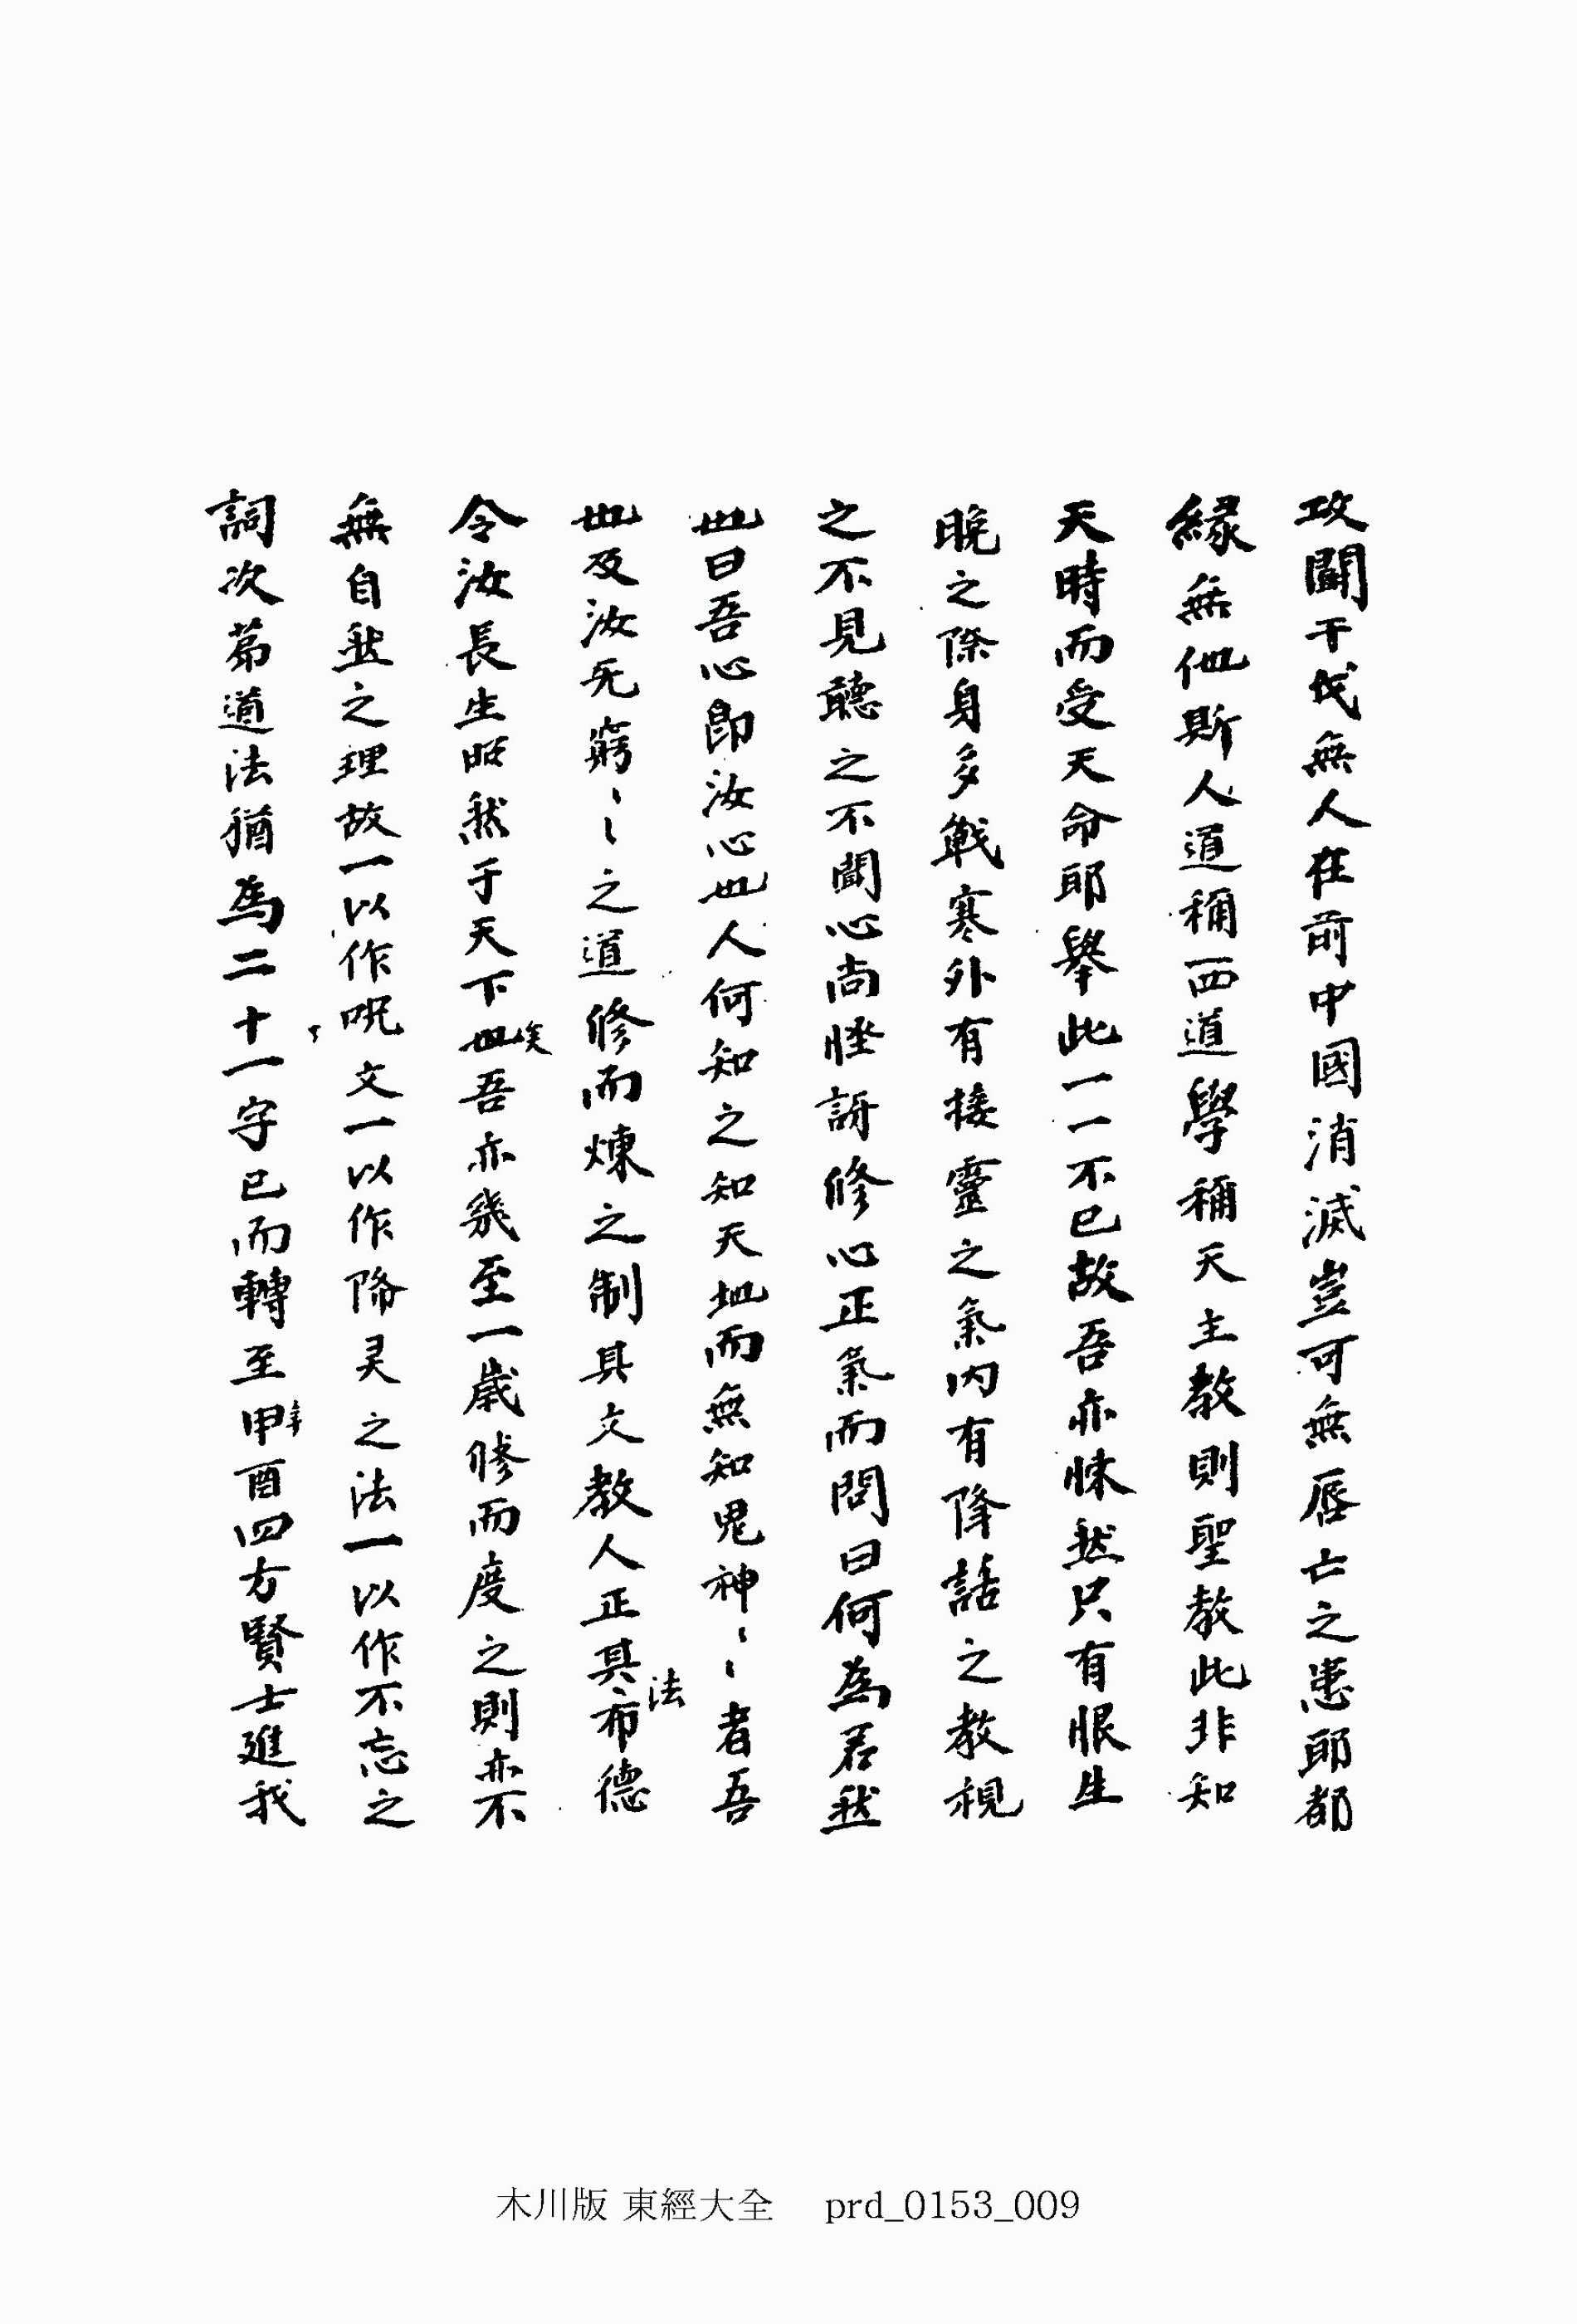 攻鬪干戈無人在前中國消滅豈可無唇亡之患耶都
緣無他斯人道稱西道學稱天主教則聖教此非知
天時而受天命耶擧此一一不已故吾亦悚然只有恨生
晚之際身多戰寒外有接靈之氣內有降話之教視
之不見聽之不聞心尚怪訝修心正氣而問曰何爲若然
也曰吾心卽汝心也人何知之知天地而無知鬼神〻〻者吾
也及汝无窮〻〻之道修而煉之制其文教人正其布德
法
令汝長生昭然于天下也吾亦幾至一歲修而度之則亦不
矣
無自然之理故一以作呪文一以作降灵之法一以作不忘之
詞次苐道法猶爲二十一字已而轉至甲酉四方賢士進我
辛
木川版 東經大全 prd_0153_009